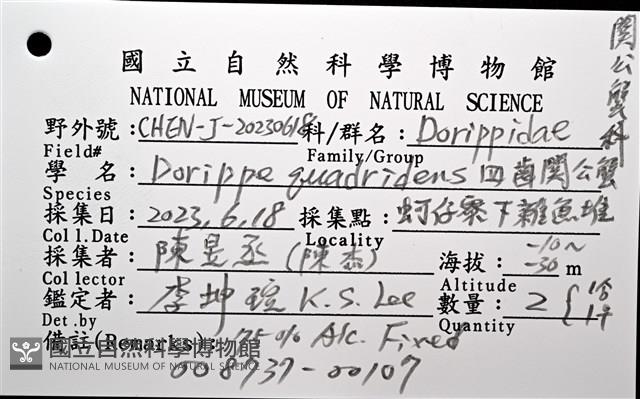 國立自然科學博物館
NATIONAL MUSEUM OF NATURAL SCIENCE
關公蟹科
野外號：CHEN-J-20230618 科/群名：Dorippidae
Field# Family/Group
學 名：Dorippe quadridens 四齒關公蟹
Species
採集日：2023.6.18 採集點：蚵仔寮下雜魚堆
Coll.Date Locality
採集者：陳昱丞(陳杰) 海拔：-10~-30 m
Collector Altitude
鑑定者：李坤瑄 K.S. Lee 數量：2 {1♂ 1♀
Det.by Quantity
備註(Remarks)：75% Alc. Fixed
008937-00107
國立自然科學博物館
NATIONAL MUSEUM OF NATURAL SCIENCE